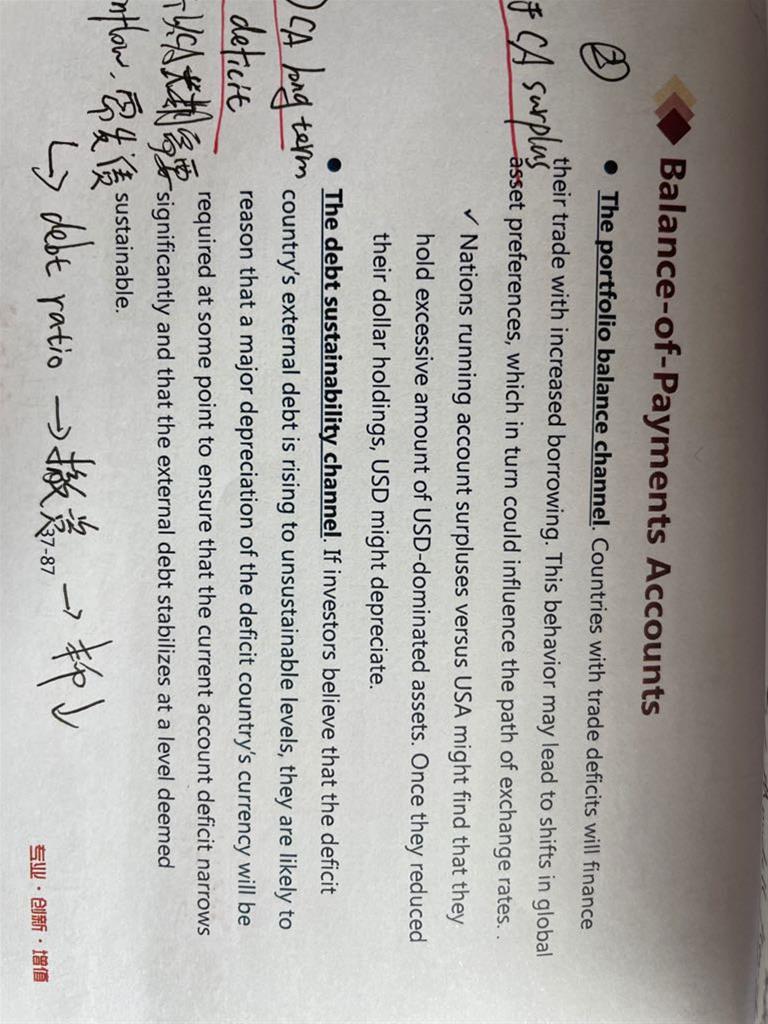 Balance-of-Payments Accounts
②
• The portfolio balance channel. Countries with trade deficits will finance
their trade with increased borrowing. This behavior may lead to shifts in global
asset preferences, which in turn could influence the path of exchange rates. .
CA surplus
✓ Nations running account surpluses versus USA might find that they
hold excessive amount of USD-dominated assets. Once they reduced
their dollar holdings, USD might depreciate.
• The debt sustainability channel. If investors believe that the deficit
country's external debt is rising to unsustainable levels, they are likely to
reason that a major depreciation of the deficit country's currency will be
required at some point to ensure that the current account deficit narrows
significantly and that the external debt stabilizes at a level deemed
sustainable.
CA long term
deficit
CA长期需要
inflow, 需发债
↳ debt ratio → 撤资 → 抛↓
37-87
专业·创新·增值